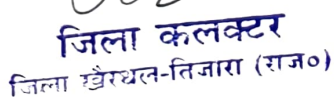 जिला कलक्टर
जिला खैरथल-तिजारा (राज०)